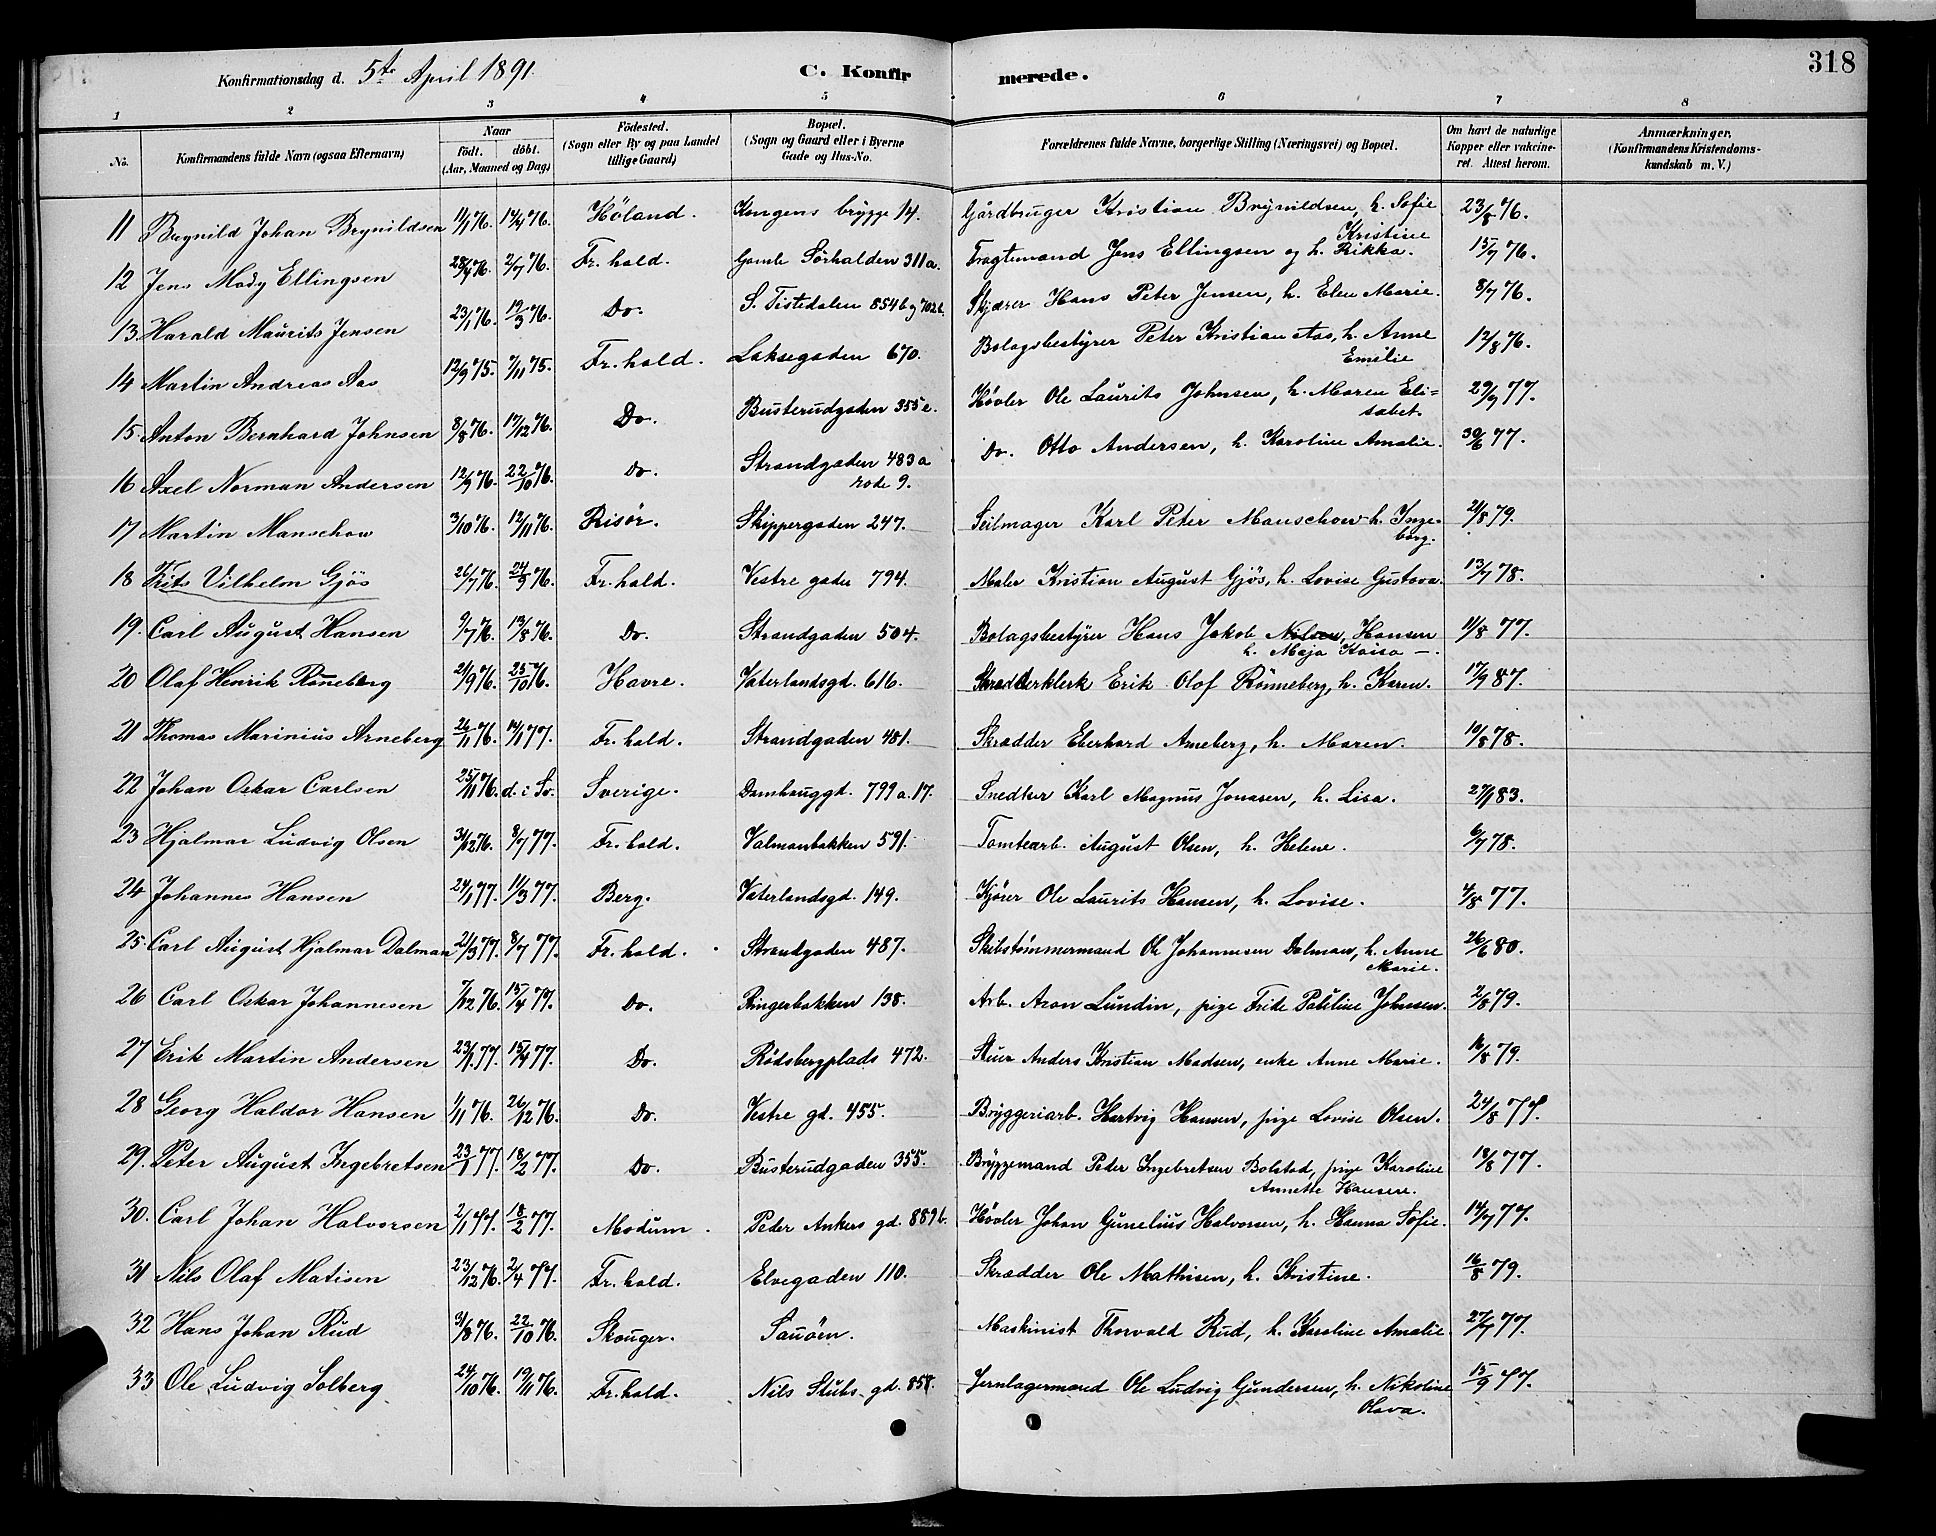 318
Konfirmationsdag d. 5te April 1891. C. Konfirmerede.
1 2 3 4 5 6 7 8
No. Konfirmandens fulde Navn (ogsaa Efternavn) Naar födt. döbt. (Aar, Maaned og Dag) Födested. (Sogn eller By og paa Landet tillige Gaard) Bopæl. (Sogn og Gaard eller i Byerne Gade og Hus-No. Forældrenes fulde Navne, borgerlige Stilling (Næringsvei) og Bopæl. Om havt de naturlige Kopper eller vakcineret. Attest herom. Anmærkninger. (Konfirmandens Kristendomskundskab m. V.)
11 Brynild Johan Brynildsen 11/1 76. 17/4 76. Høland. Kongens brygge 14. Gårdbruger Kristian Brynildsen, h. Sofie Kristine 23/8 76.
12 Jens Mody Ellingsen 28/4 76. 2/7 76. Fr. hald. Gamle Sørhalden 311a. Fragtemand Jens Ellingsen og h. Rikka. 15/7 76.
13. Harald Maurits Jensen 23/1 76. 12/3 76. Do. S. Tistedalen 854b og 702b. Skjærer Hans Peter Jensen, h. Elen Marie. 8/7 76.
14 Martin Andreas Aas 12/9 75. 7/11 75. Fr. hald. Laksegaden 670. Bolagsbestyrer Peter Kristian Aas, h. Anne Emilie 12/8 76.
15. Anton Bernhard Johnsen 8/8 76. 17/12 76. Do. Busterudgaden 355e. Høvler Ole Laurits Johnsen, h. Maren Elisabet. 29/9 77.
16 Axel Norman Andersen 12/9 76. 22/10 76. Do. Strandgaden 483a rode 9. Do. Otto Andersen, h. Karoline Amalie. 30/6 77.
17 Martin Manschow 3/10 76. 12/11 76. Risør. Skippergaden 247. Seilmager Karl Peter Manschow h. Ingeborg. 2/8 79.
18 Frits Vilhelm Gjös 26/7 76. 24/9 76. Fr. hald. Vestre gade 794. Maler Kristian August Gjös, h. Lovise Gustava. 13/7 78.
19. Carl August Hansen 9/7 76. 13/8 76. Do. Strandgaden 504. Bolagsbestyrer Hans Jakob Nilsen, Hansen h. Maja Kaisa —. 11/8 77.
20 Olaf Henrik Rønneberg 21/9 76. 25/10 76. Havre. Vaterlandsgd. 616. Skrædderklerk Erik Olof Rönneberg, h. Karen. 17/9 87.
21 Thomas Marinius Arneberg 26/11 76. 14/1 77. Fr. hald. Strandgaden 481. Skrædder Eberhard Arneberg, h. Maren. 10/8 78.
22 Johan Oskar Carlsen 25/11 76. d. i Sv. Sverige. Damhauggd. 799a. 17. Snedker Karl Magnus Jonasen, h. Lisa. 27/1 83.
23 Hjalmar Ludvig Olsen 31/12 76. 8/7 77. Fr. hald. Valmanbakken 591. Tomtearb. August Olsen, h. Helene. 6/7 78.
24 Johannes Hansen 24/1 77. 11/3 77. Berg. Vaterlandsgd. 149. Kjører Ole Laurits Hansen, h. Lovise. 4/8 77.
25. Carl August Hjalmar Dalman 21/3 77. 8/7 77. Fr. hald. Strandgaden 487. Skibstömmermand Ole Johannesen Dalman, h. Anne Marie. 26/6 80.
26 Carl Oskar Johannesen 7/12 76. 15/4 77. Do. Ringerbakken 138. Arb. Aron Lundin, pige Frite Pauline Johnsen. 2/8 79.
27 Erik Martin Andersen 23/1 77. 15/4 77. Do. Rødsbergplads 472. Stuer Anders Kristian Madsen, enke Anne Marie. 16/8 79.
28 Georg Haldor Hansen 1/11 76. 26/12 76. Do. Vestre gd. 455. Bryggeriarb. Hartvig Hansen, pige Lovise Olsen. 24/8 77.
29. Peter August Ingebretsen 23/1 77. 18/2 77. Do. Busterudgaden 355. Bryggemand Peter Ingebretsen Bolstad, pige Karoline Annette Hansen. 18/8 77.
30. Carl Johan Halvorsen 2/1 77. 18/2 77. Modum. Peder Ankers gd. 889b. Høvler Johan Gunelius Halvorsen, h. Hanna Sofie. 14/7 77.
31 Nils Olaf Matisen 23/12 76. 2/4 77. Fr. hald. Elvegaden 110. Skrædder Ole Mathisen, h. Kristine. 16/8 79.
32 Hans Johan Rud 31/8 76. 22/10 76. Skouger. Sauöen. Maskinist Thorvald Rud, h. Karoline Amalie. 27/7 77.
33 Ole Ludvig Solberg 24/10 76. 19/11 76. Fr. hald. Nils Stubs gd. 858. Jernlagermand Ole Ludvig Gundersen, h. Nikoline Olava. 15/9 77.